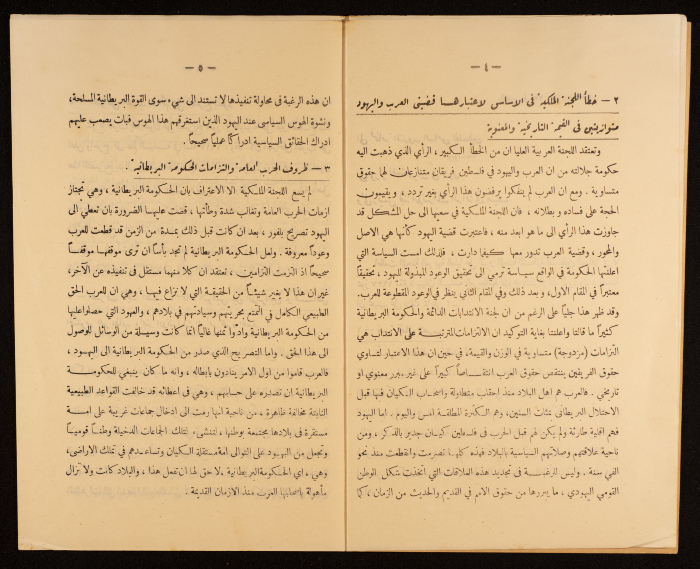 — ٤ —
٢ — خطأ اللجنة الملكية في الاساس لاعتبارها قضيتي العرب واليهود
متوازيتين في القيمة التاريخية والمعنوية
وتعتقد اللجنة العربية العليا ان من الخطأ الكبير، الرأي الذي ذهبت اليه
حكومة جلالته من ان العرب واليهود في فلسطين فريقان متنازعان لها حقوق
متساوية . ومع ان العرب لم ينفكوا يرفضون هذا الرأي بغير تردد ، ويقيمون
الحجة على فساده وبطلانه ، فان اللجنة الملكية في سعيها الى حل المشكل قد
جاوزت هذا الرأي الى ما هو ابعد منه ، فاعتبرت قضية اليهود كأنها هي الاصل
والمحور، وقضية العرب تدور معها كيفما دارت ، فلذلك امست السياسة التي
اعلنتها الحكومة في الواقع سياسة ترمي الى تحقيق الوعود المبذولة لليهود ، تحقيقاً
معتبراً في المقام الاول، وبعد ذلك وفي المقام الثاني ينظر في الوعود المقطوعة للعرب.
وقد ظهر هذا جلياً على الرغم من ان لجنة الانتدابات الدائمة والحكومة البريطانية
كثيراً ما قالتا واعلنتا بغاية التوكيد ان الالتزامات المترتبة على الانتداب هي
التزامات (مزدوجة) متساوية في الوزن والقيمة، في حين ان هذا الاعتبار لتساوي
حقوق الفريقين ينتقص حقوق العرب انتقاصاً كبيراً على غير مبرر معنوي او
تاريخي . فالعرب هم اهل البلاد منذ احقاب متطاولة واصحاب الكيان فيها قبل
الاحتلال البريطاني بمئات السنين، وهم الكثرة المطلقة امس واليوم ، اما اليهود
فهم اقلية طارئة ولم يكن لهم قبل الحرب في فلسطين كيان جدير بالذكر ، ومن
ناحية علاقتهم وصلاتهم السياسية بالبلاد فهذه كلها تصرمت وانقطعت منذ نحو
الفي سنة . وليس للرغبة في تجديد هذه العلاقات التي اتخذت شكل الوطن
القومي اليهودي ، ما يبررها من حقوق الامم في القديم والحديث من الزمان ، كما
— ٥ —
ان هذه الرغبة في محاولة تنفيذها لا تستند الى شيء سوى القوة البريطانية المسلحة،
ونشوة الهوس السياسي عند اليهود الذين استغرقهم هذا الهوس فبات يصعب عليهم
ادراك الحقائق السياسية ادراكاً عملياً صحيحاً .
٣ — ظروف الحرب العامة والتزامات الحكومة البريطانية :
لم يسع اللجنة الملكية الا الاعتراف بان الحكومة البريطانية ، وهي تجتاز
ازمات الحرب العامة وتغالب شدة وطأتها ، قضت عليها الضرورة بان تعطي الى
اليهود تصريح بلفور ، بعد ان كانت قبل ذلك بمدة من الزمن قد قطعت للعرب
وعوداً معروفة . ولعل الحكومة البريطانية لم تجد بأساً ان ترى موقفها موقفاً
صحيحاً اذ التزمت التزامين ، تعتقد ان كلا منهما مستقل في تنفيذه عن الآخر،
غير ان هذا لا يغير شيئاً من الحقيقة التي لا نزاع فيها ، وهي ان للعرب الحق
الطبيعي الكامل في التمتع بحريتهم وسيادتهم في بلادهم ، والعهود التي حصلوا عليها
من الحكومة البريطانية وادّوا ثمنها غالياً انما كانت وسيلة من الوسائل للوصول
الى هذا الحق . واما التصريح الذي صدر من الحكومة البريطانية الى اليهود ،
فالعرب قاموا من اول الامر ينادون بابطاله ، وانه ما كان ينبغي للحكومة
البريطانية ان تصدره على حسابهم ، وهي في اعطائه قد خالفت القواعد الطبيعية
الثابتة مخالفة ظاهرة ، من ناحية انها رمت الى ادخال جماعات غريبة على امة
مستقرة في بلادها مجتمعة بوطنها ، لتنشىء لتلك الجماعات الدخيلة وطناً قومياً
وتجعل من اليهود على التوالي امة مستقلة الكيان وتساعدهم في تملك الاراضي،
وهي ، اي الحكومة البريطانية ، لا حق لها ان تفعل هذا ، والبلاد كانت ولا تزال
مأهولة باصحابها العرب منذ الازمان القديمة .